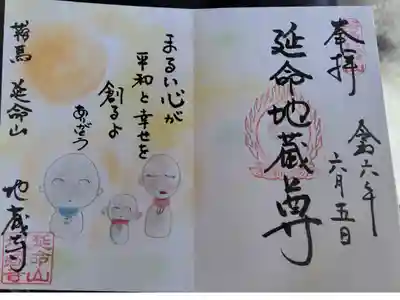 奉拝
延命地蔵尊
令六年
六月五日
まるい心が
平和と幸せを
創るよ
鞍馬 延命山 地蔵寺
延命山